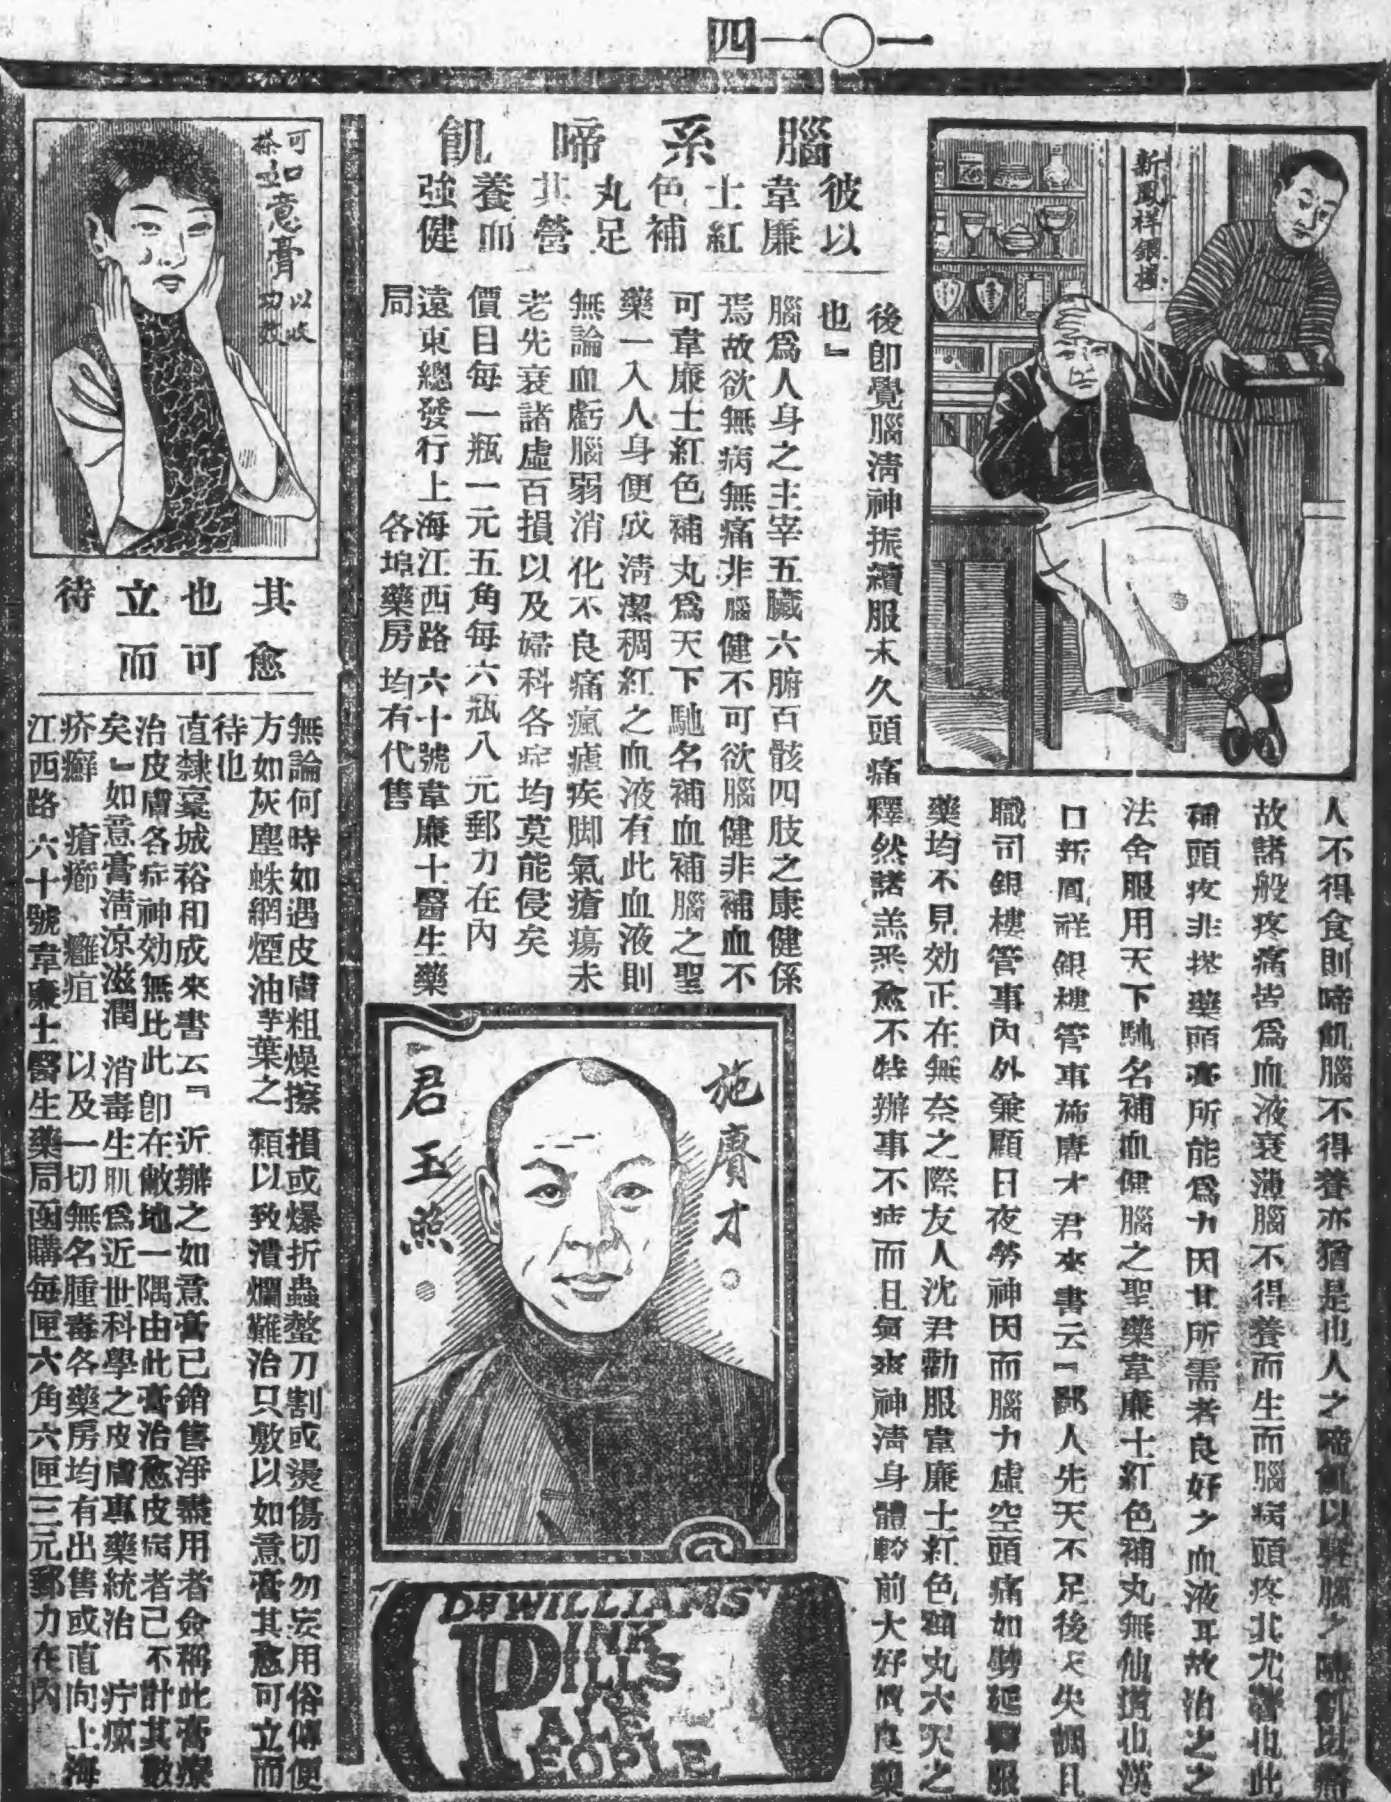 一〇一四
新鳳祥銀樓
腦系啼飢
彼以
韋廉
士紅
色補
丸足
其營
養而
強健
人不得食則啼飢腦不得養亦猶是也人之啼飢以聲腦之啼飢以痛
故諸般疼痛皆爲血液衰薄腦不得養而生而腦病頭疼此尤著也此
種頭疼非搽藥頭膏所能爲力因其所需者良好之血液耳故治之之
法舍服用天下馳名補血健腦之聖藥韋廉士紅色補丸無他道也漢
口新鳳祥銀樓管事施賡才君來書云『鄙人先天不足後天失調且
職司銀樓管事內外兼顧日夜勞神因而腦力虛空頭痛如劈延醫服
藥均不見効正在無奈之際友人沈君勸服韋廉士紅色補丸六次之
後卽覺腦淸神振續服未久頭痛釋然諸恙悉愈不特辦事不疲而且氣爽神淸身體較前大好眞良藥
也』
腦爲人身之主宰五臟六腑百骸四肢之康健係
焉故欲無病無痛非腦健不可欲腦健非補血不
可韋廉士紅色補丸爲天下馳名補血補腦之聖
藥一入人身便成淸潔稠紅之血液有此血液則
無論血虧腦弱消化不良痛瘋瘧疾脚氣瘡瘍未
老先衰諸虛百損以及婦科各症均莫能侵矣
價目每一瓶一元五角每六瓶八元郵力在內
遠東總發行上海江西路六十號韋廉士醫生藥
局 各埠藥房均有代售
施賡才
君玉照
DR WILLIAMS'
PINK
PILLS
FOR
PALE
PEOPLE
可搽
如意膏
以收
功效
其愈
也可
立而
待
無論何時如遇皮膚粗燥擦損或爆折蟲螫刀割或燙傷切勿妄用俗傳便
方如灰塵蛛網煙油芋葉之類以致潰爛難治只敷以如意膏其愈可立而
待也
直隸藁城裕和成來書云『近辦之如意膏已銷售淨盡用者僉稱此膏療
治皮膚各症神効無比此卽在敝地一隅由此膏治愈皮病者已不計其數
矣』如意膏淸凉滋潤 消毒生肌爲近世科學之皮膚專藥統治 疔瘰
疥癬 瘡癤 癰疽 以及一切無名腫毒各藥房均有出售或直向上海
江西路六十號韋廉士醫生藥局函購每匣六角六匣三元郵力在內